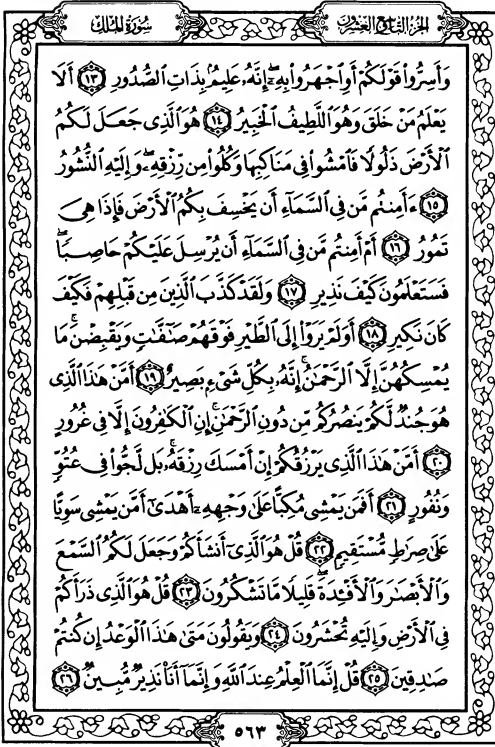 سُورَةُ المُلْكِ
الجُزءُ التَّاسِعُ وَالعِشْرُونَ
وَأَسِرُّوا۟ قَوْلَكُمْ أَوِ ٱجْهَرُوا۟ بِهِۦٓ إِنَّهُۥ عَلِيمٌۢ بِذَاتِ ٱلصُّدُورِ ١٣ أَلَا
يَعْلَمُ مَنْ خَلَقَ وَهُوَ ٱللَّطِيفُ ٱلْخَبِيرُ ١٤ هُوَ ٱلَّذِى جَعَلَ لَكُمُ
ٱلْأَرْضَ ذَلُولًا فَٱمْشُوا۟ فِى مَنَاكِبِهَا وَكُلُوا۟ مِن رِّزْقِهِۦ وَإِلَيْهِ ٱلنُّشُورُ
١٥ ءَأَمِنتُم مَّن فِى ٱلسَّمَآءِ أَن يَخْسِفَ بِكُمُ ٱلْأَرْضَ فَإِذَا هِىَ
تَمُورُ ١٦ أَمْ أَمِنتُم مَّن فِى ٱلسَّمَآءِ أَن يُرْسِلَ عَلَيْكُمْ حَاصِبًا
فَسَتَعْلَمُونَ كَيْفَ نَذِيرِ ١٧ وَلَقَدْ كَذَّبَ ٱلَّذِينَ مِن قَبْلِهِمْ فَكَيْفَ
كَانَ نَكِيرِ ١٨ أَوَلَمْ يَرَوْا۟ إِلَى ٱلطَّيْرِ فَوْقَهُمْ صَٰٓفَّٰتٍ وَيَقْبِضْنَ مَا
يُمْسِكُهُنَّ إِلَّا ٱلرَّحْمَٰنُ إِنَّهُۥ بِكُلِّ شَىْءٍۭ بَصِيرٌ ١٩ أَمَّنْ هَٰذَا ٱلَّذِى
هُوَ جُندٌ لَّكُمْ يَنصُرُكُم مِّن دُونِ ٱلرَّحْمَٰنِ إِنِ ٱلْكَٰفِرُونَ إِلَّا فِى غُرُورٍ
٢٠ أَمَّنْ هَٰذَا ٱلَّذِى يَرْزُقُكُمْ إِنْ أَمْسَكَ رِزْقَهُۥ بَل لَّجُّوا۟ فِى عُتُوٍّ
وَنُفُورٍ ٢١ أَفَمَن يَمْشِى مُكِبًّا عَلَىٰ وَجْهِهِۦٓ أَهْدَىٰٓ أَمَّن يَمْشِى سَوِيًّا
عَلَىٰ صِرَٰطٍ مُّسْتَقِيمٍ ٢٢ قُلْ هُوَ ٱلَّذِىٓ أَنشَأَكُمْ وَجَعَلَ لَكُمُ ٱلسَّمْعَ
وَٱلْأَبْصَٰرَ وَٱلْأَفْـِٔدَةَ قَلِيلًا مَّا تَشْكُرُونَ ٢٣ قُلْ هُوَ ٱلَّذِى ذَرَأَكُمْ
فِى ٱلْأَرْضِ وَإِلَيْهِ تُحْشَرُونَ ٢٤ وَيَقُولُونَ مَتَىٰ هَٰذَا ٱلْوَعْدُ إِن كُنتُمْ
صَٰدِقِينَ ٢٥ قُلْ إِنَّمَا ٱلْعِلْمُ عِندَ ٱللَّهِ وَإِنَّمَآ أَنَا۠ نَذِيرٌ مُّبِينٌ ٢٦
٥٦٣